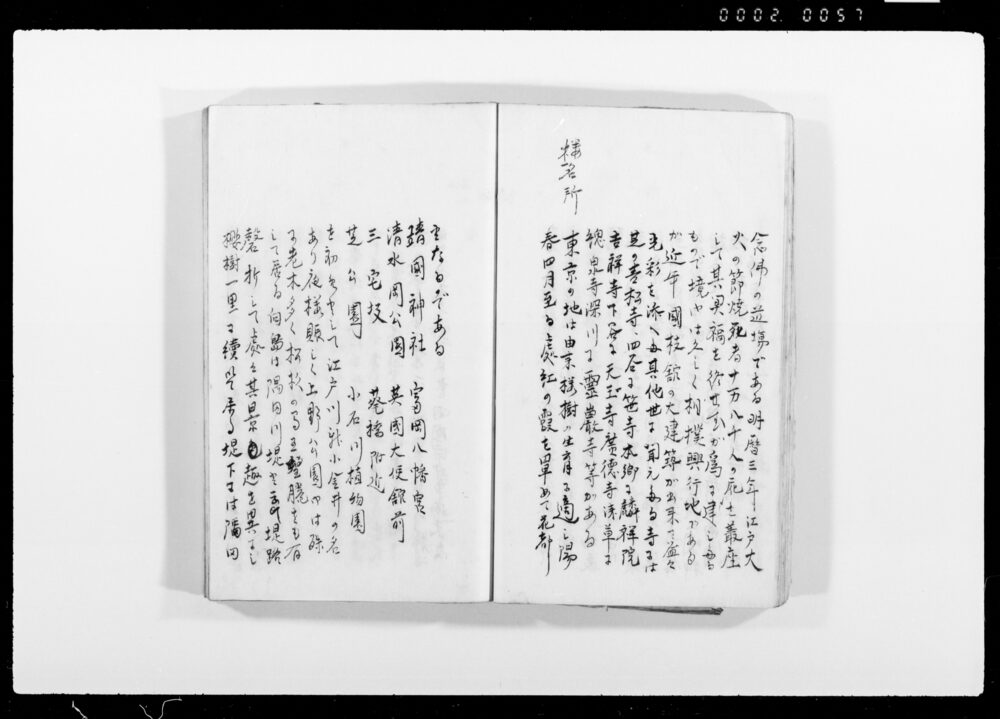 0002 0057
念佛の道場である明暦三年江戸大
火の節焼死者十万八千人の死士叢座
して其冥福を修せんが為に建しゐる
もので境内は久しく相撲興行地である
が近年國技館の大建築が出来て益々
光彩を添へゐ其他世に聞えゐる寺には
芝の青松寺、四谷に笹寺本郷に麟祥院
吉祥寺下谷に天王寺廣徳寺浅草に
總泉寺深川に靈巌寺等がある
桜名所
東京の地は由来桜樹の生育に適し陽
春四月至る處紅の霞を罩めて花の都
となるのである
靖國神社　富岡八幡宮
清水岡公園　英國大使館前
三宅坂　葵橋附近
芝公園　小石川植物園
を初めとして江戸川新小金井の名
あり夜桜賑しく上野公園内は殊
に老木多く松杉の間に
して居る向島は隅田川堤を云ひ堤路
磬折して處々其景趣を異にし
桜樹一里に續き居る堤下には隅田